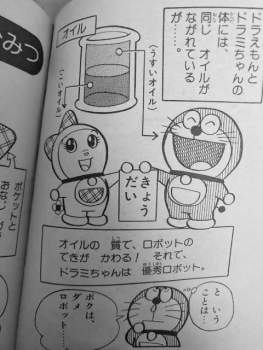 みつ
ドラえもんと
ドラミちゃんの
体には、
同じ オイルが
ながれている
が……。
オイル
(うすいオイル)
(こいオイル)
きょう
だい
ポケットと
おなじ
オイルの 質で、ロボットの
できが かわる! それで、
ドラミちゃんは 優秀ロボット。
と いう
ことは…
ボクは、
ダメ
ロボット……